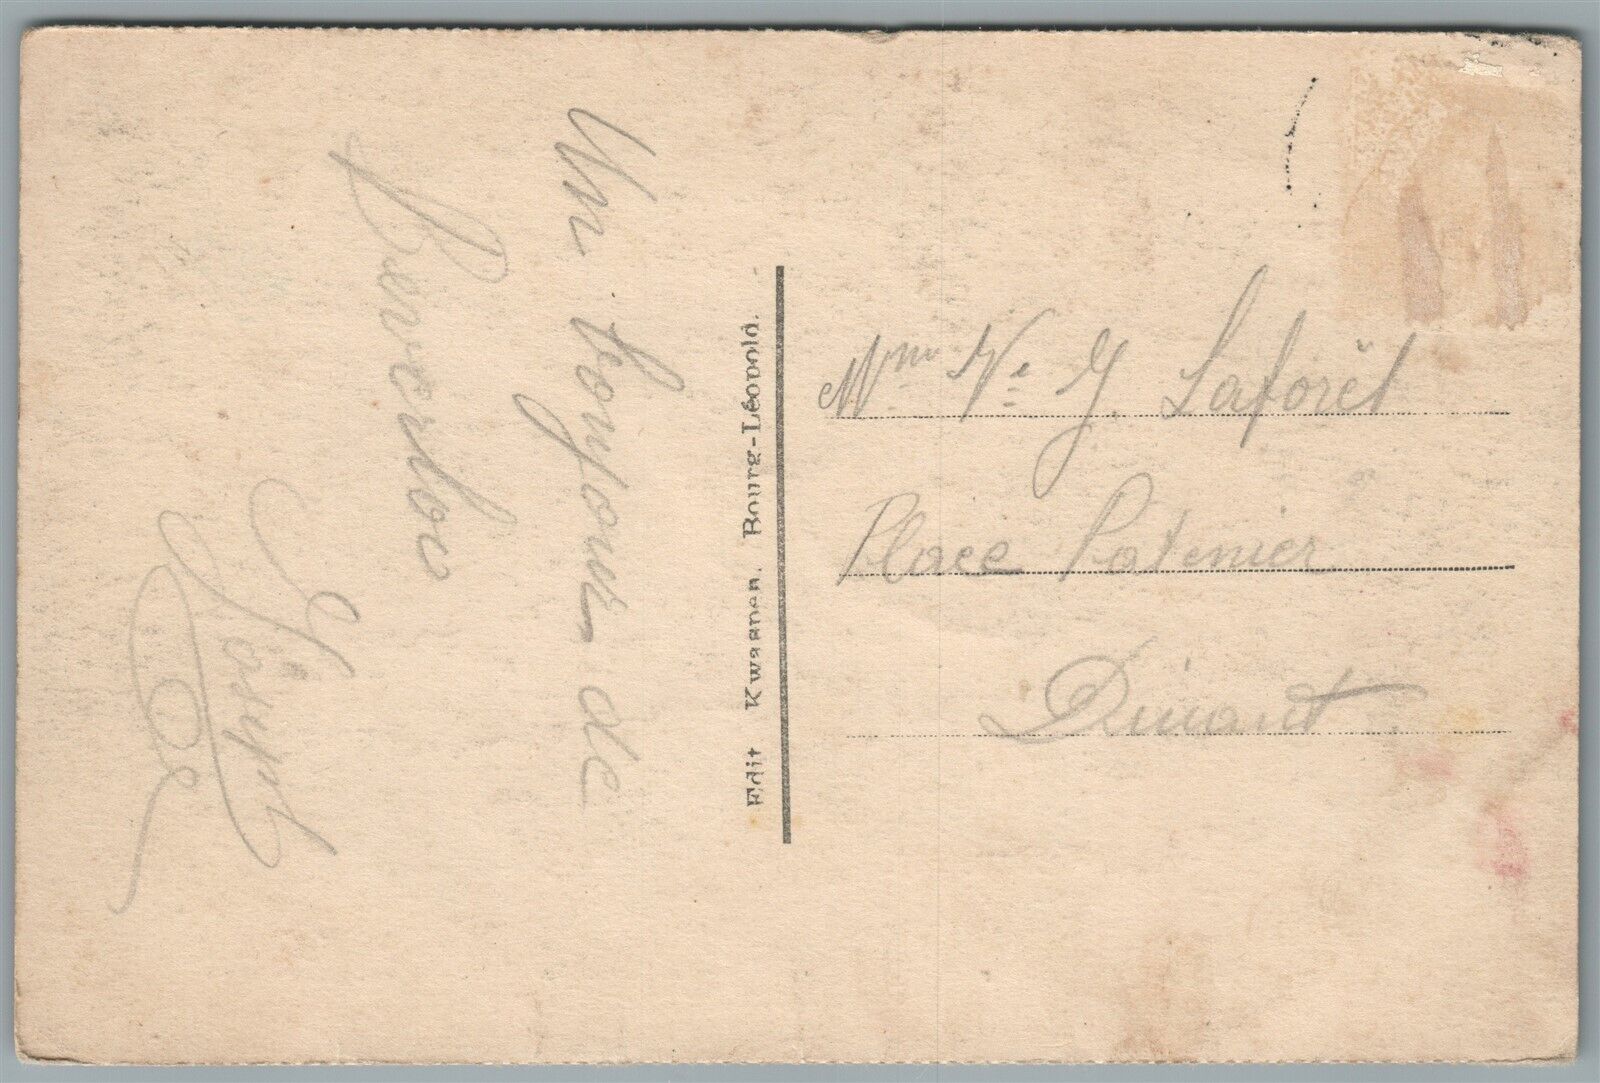 Un bonjour de
Beverloo
Joseph
Edit Kwaanen. Bourg-Léopold.
Mme Ve J. Laforêt
Place Patenier
Dinant